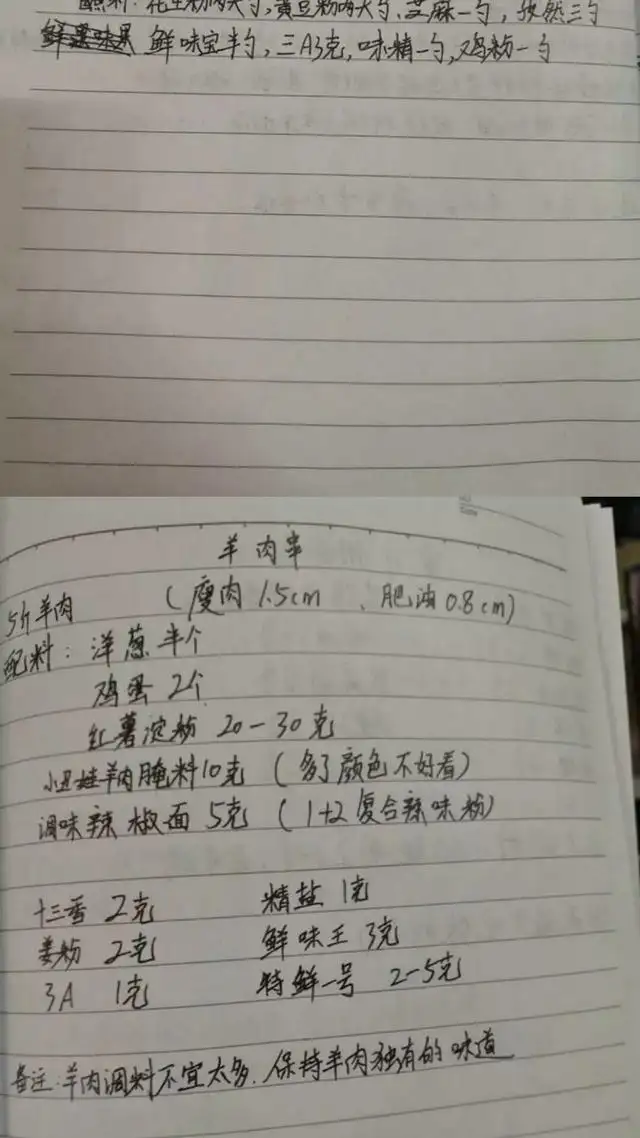 蘸料：花生粉两大勺，黄豆粉两大勺，芝麻一勺，孜然三勺
鲜味宝半勺，三A3克，味精一勺，鸡粉一勺
羊肉串
5斤羊肉 （瘦肉1.5cm、肥油0.8cm）
配料：洋葱半个
鸡蛋2个
红薯淀粉 20-30克
羊肉腌料10克（多了颜色不好看）
调味辣椒面 5克（1+2复合辣味粉）
十三香 2克 精盐 1克
姜粉 2克 鲜味王 3克
3A 1克 特鲜一号 2-5克
备注：羊肉调料不宜太多，保持羊肉独有的味道